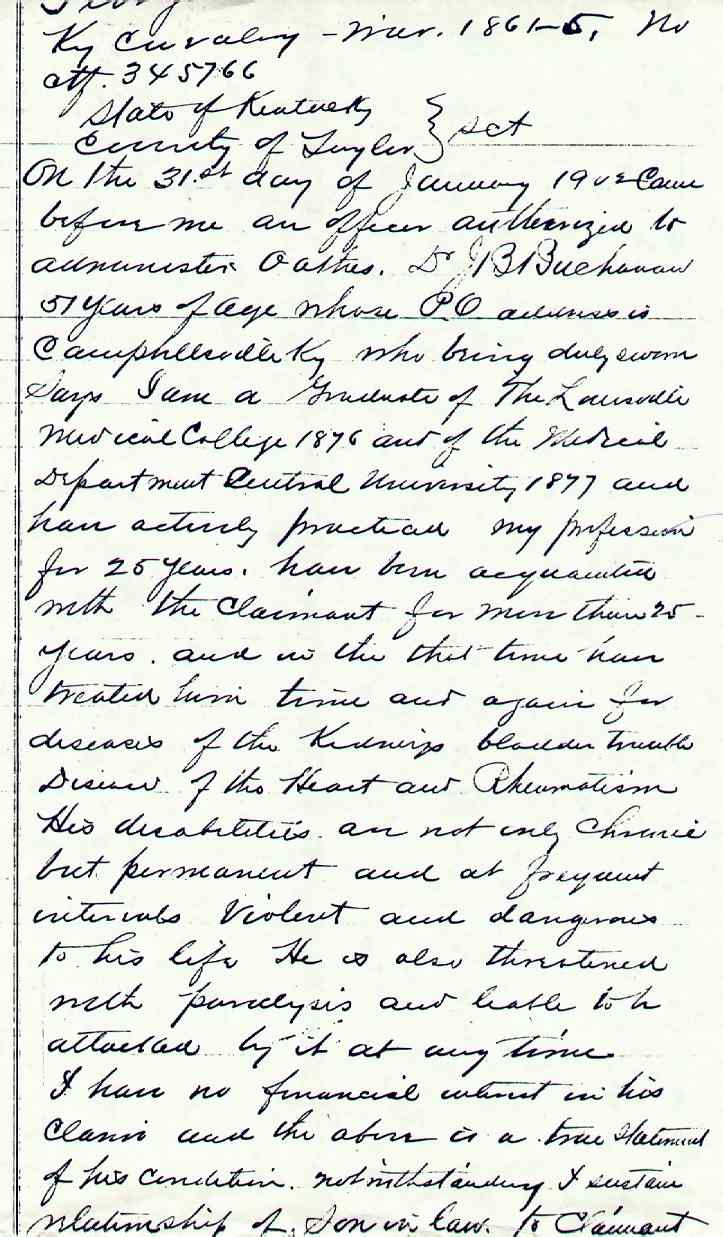 Ky Cavalry - War. 1861-5, No
ctf. 345766
State of Kentucky
County of Taylor } Sct
On the 31.st day of January 1902 Came
before me an officer authorized to
administer Oathes. Dr J B Buchanan
51 years of age whose P.O address is
Campbellsville Ky who being duly sworn
Says I am a Graduate of The Louisville
Medical College 1876 and of the Medical
Department Central University 1877 and
have actively practiced my profession
for 25 years. have been acquainted
with the Claimant for more than 25
years. and in the that time have
treated him time and again for
diseases of the Kidneys bladder trouble
Disease of the Heart and Rheumatism
His disabilities are not only Chronic
but permanent and at frequent
intervals Violent and dangerous
to his life He is also threatened
with paralysis and liable to be
attacked by it at any time
I have no financial interest in his
Claim and the above is a true statement
of his condition. notwithstanding I sustain
relationship of Son in law. to Claimant